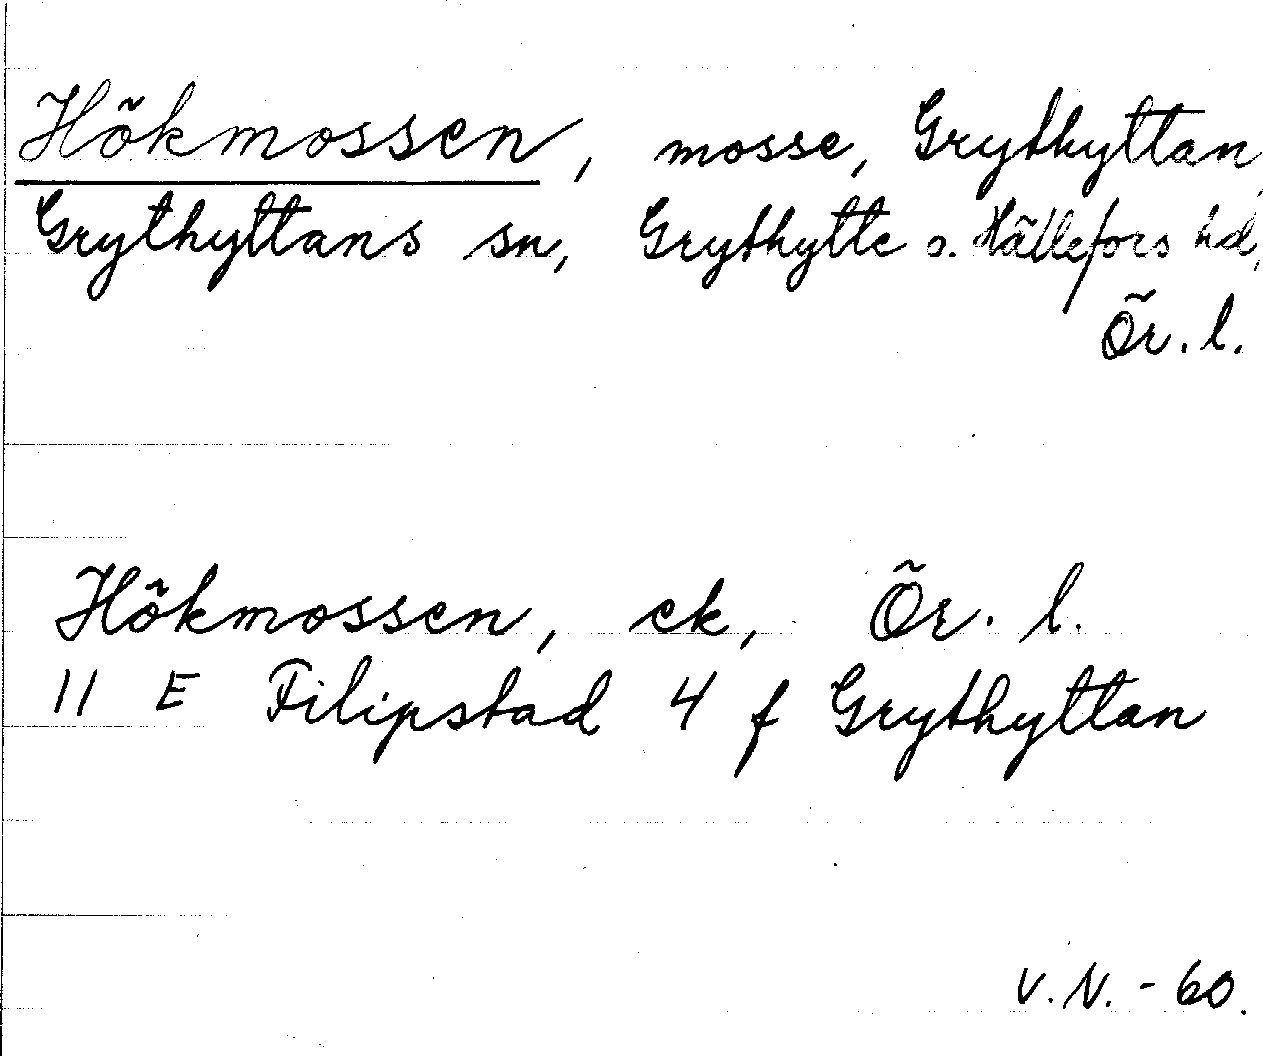 Hökmossen, mosse, Grythyttan,
Grythyttans sn, Grythytte o. Hällefors hd,
Ör. l.
Hökmossen, ek, Ör. l.
11 E Filipstad 4 f Grythyttan
V. N. - 60.